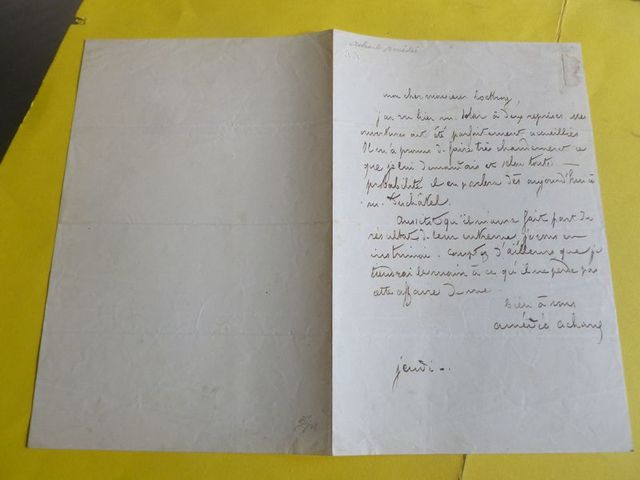 mon cher monsieur Lockroy,
j'ai vu hier m. à deux reprises mes
ouvertures ont été parfaitement accueillies
Il m'a promis de faire très chaudement ce
que je lui demandais et selon toute
probabilité il en parlera dès aujourd'hui à
m. Duchâtel.
Aussitôt qu'il m'aura fait part du
résultat de leur entrevue, je vous en
instruirai. comptez d'ailleurs que je
tiendrai la main à ce qu'il ne perde pas
cette affaire de vue.
bien à vous
amédée achard
jeudi.